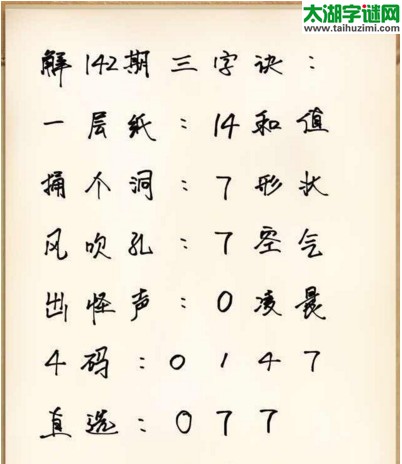 太湖字谜网
www.taihuzimi.com
解142期三字诀：
一层纸：14和值
捅个洞：7形状
风吹孔：7空气
出怪声：0凌晨
4码：0147
直选：077